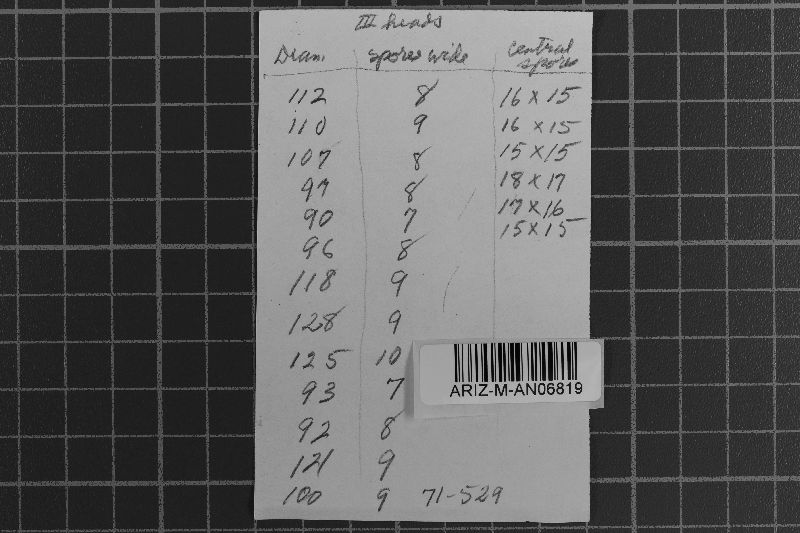 III heads
Diam spores wide central spores
112 8 16 x 15
110 9 16 x 15
107 8 15 x 15
97 8 18 x 17
90 7 17 x 16
96 8 15 x 15
118 9
128 9
125 10
93 7
92 8
121 9
100 9 71-529
ARIZ-M-AN06819